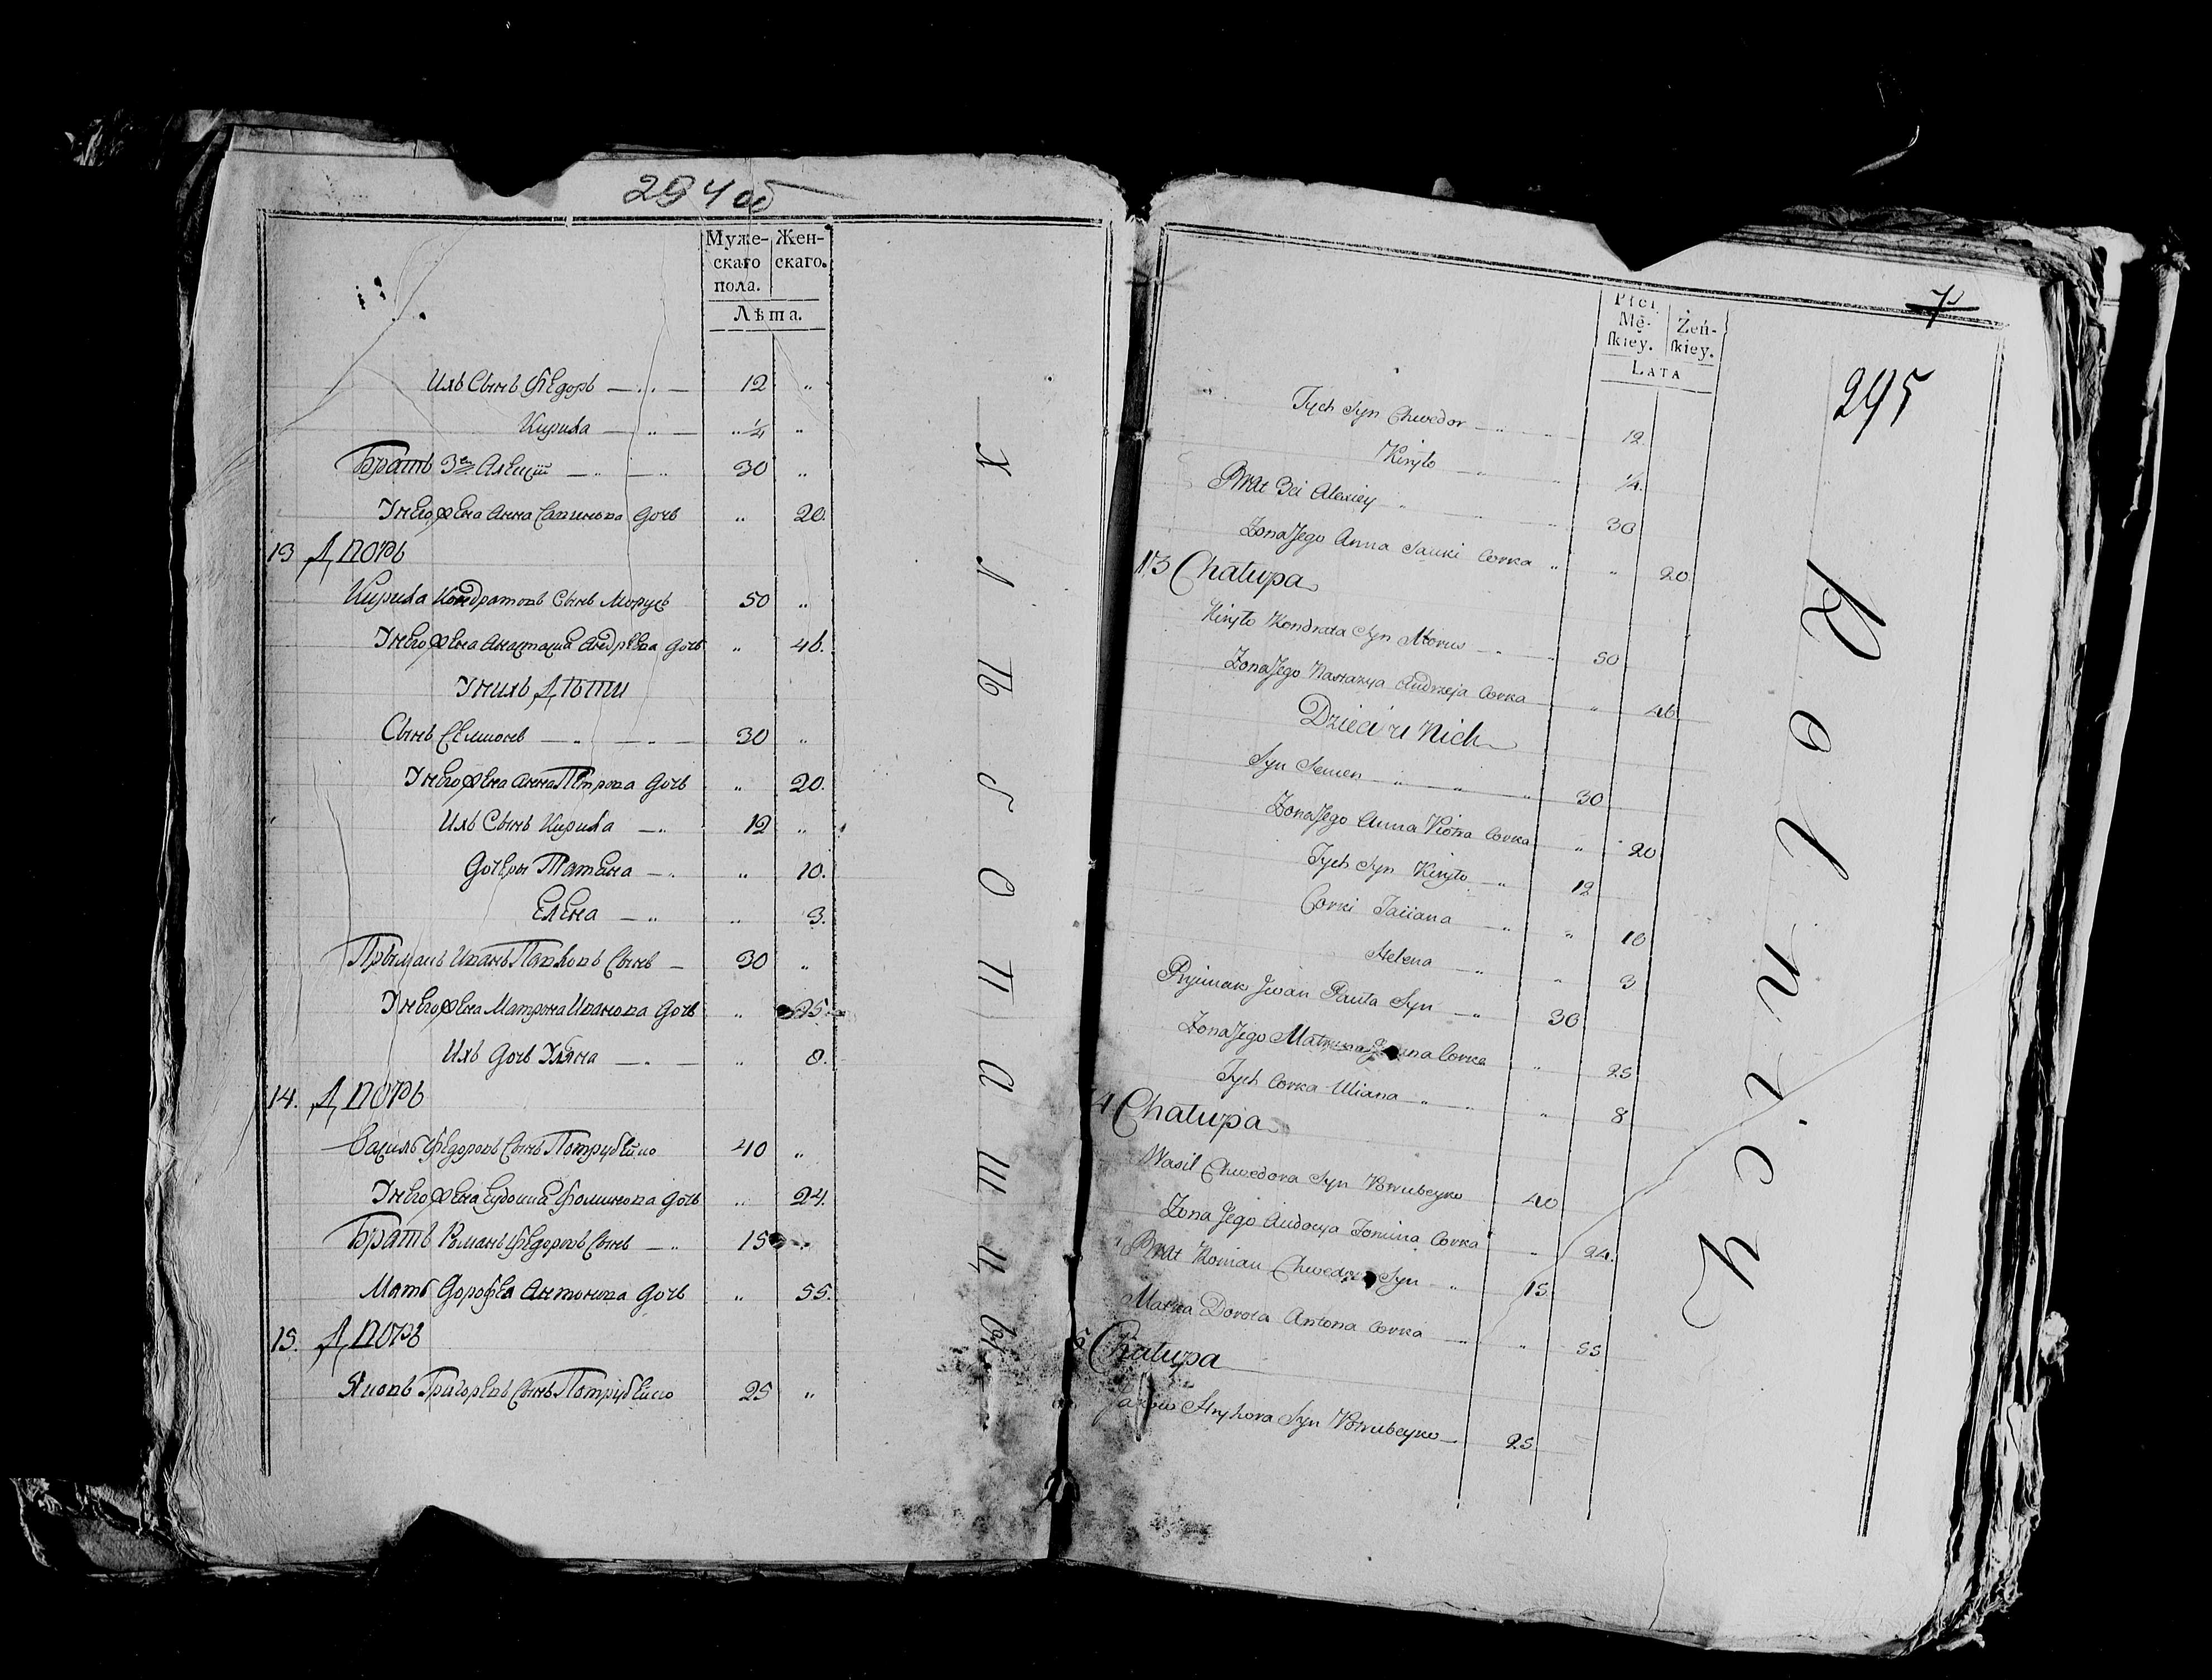 294 об
Муже-
скаго
пола.
Жен-
скаго.
Лѣта.
Ихъ Сынъ Ѳедоръ — „ — 12 „
Кирила — „ — „ ¼ „
Братъ 3ей Алексѣй — „ — „ 30 „
У него Жена Анна Савинова дочь „ 20.
13 Дворъ
Кирила Кондратовъ Сынъ Морусъ 50 „
У него Жена Анастасия Андрѣева дочь „ 46.
У нихъ Дѣти
Сынъ Семионъ — „ — „ — 30 „
У него Жена Анна Петрова дочь „ 20.
Ихъ Сынъ Кирила — „ 12 „
Дочери Татьяна — „ „ 10.
Елена — „ „ 3.
Прымакъ Иванъ Павловъ Сынъ — 30 „
У него Жена Матрона Иванова дочь „ 25.
Ихъ дочь Ульяна — „ — „ 8.
14. Дворъ
Василь Ѳедоровъ Сынъ Потрубейко 40 „
У него Жена Евдокия Фоминова дочь „ 24.
Братъ Романъ Ѳедоровъ Сынъ — „ 15 „
Мать Дорофея Антонова дочь „ 55.
15. Дворъ
Яковъ Григоревъ Сынъ Потрубейко 25 „
Хлѣбопашцы
7
295
Płci
Mę-
ſkiey.
Żeń-
ſkiey.
LATA
Tych Syn Chwedor — „ — 12
Kiryło — „ „ ¼.
Brat 3ci Alexiey „ — „ 30
Zona Jego Anna Sawki Corka „ „ 20.
13 Chałupa
Kiryło Kondrata Syn Morus — „ — 50
Zona Jego Nastazya Andrzeja Corka „ 46.
Dzieci u Nich
Syn Semen — „ — „ — „ 30
Zona Jego Anna Piotra Corka „ 20
Tych Syn Kiryło — „ 12
Corki Taciana — „ „ 10
Helena — „ „ 3
Pryimak Jwan Pawła Syn — „ 30
Zona Jego Matrona Jwana Corka „ 25
Tych Corka Uliana „ — „ 8
14 Chałupa
Wasil Chwedora Syn Potrubeyko 40
Zona Jego Audocya Fomina Corka „ 24.
Brat Roman Chwedora Syn — „ 15
Matka Dorota Antona Corka — „ „ 55
15 Chałupa
Jakow Hryhora Syn Potrubeyko — 25
Rolnicy